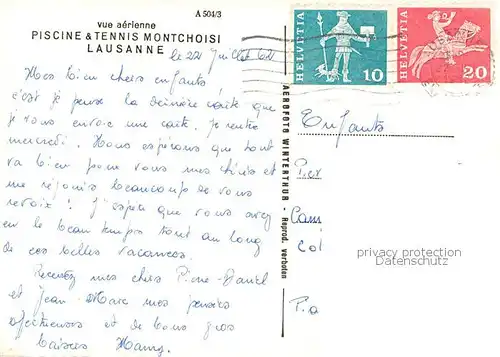 A 504/3
vue aérienne
PISCINE & TENNIS MONTCHOISI
LAUSANNE
le 22 Juillet 62
Mes bien chers enfants,
c'est je pense la dernière carte que
je vous envoie une carte. Je rentre
mercredi. Nous espérons que tout
va bien pour vous mes chéris et
me réjouis beaucoup de vous
revoir! J'espère que vous avez
eu le beau temps tout au long
de ces belles vacances.
Recevez mes chers Pierre-Daniel
et Jean-Marc mes pensées
affectueuses et de bons gros
baisers
HELVETIA 10
HELVETIA 20
AEROFOTO WINTERTHUR - Reprod. verboten
Enfants
privacy protection
Datenschutz